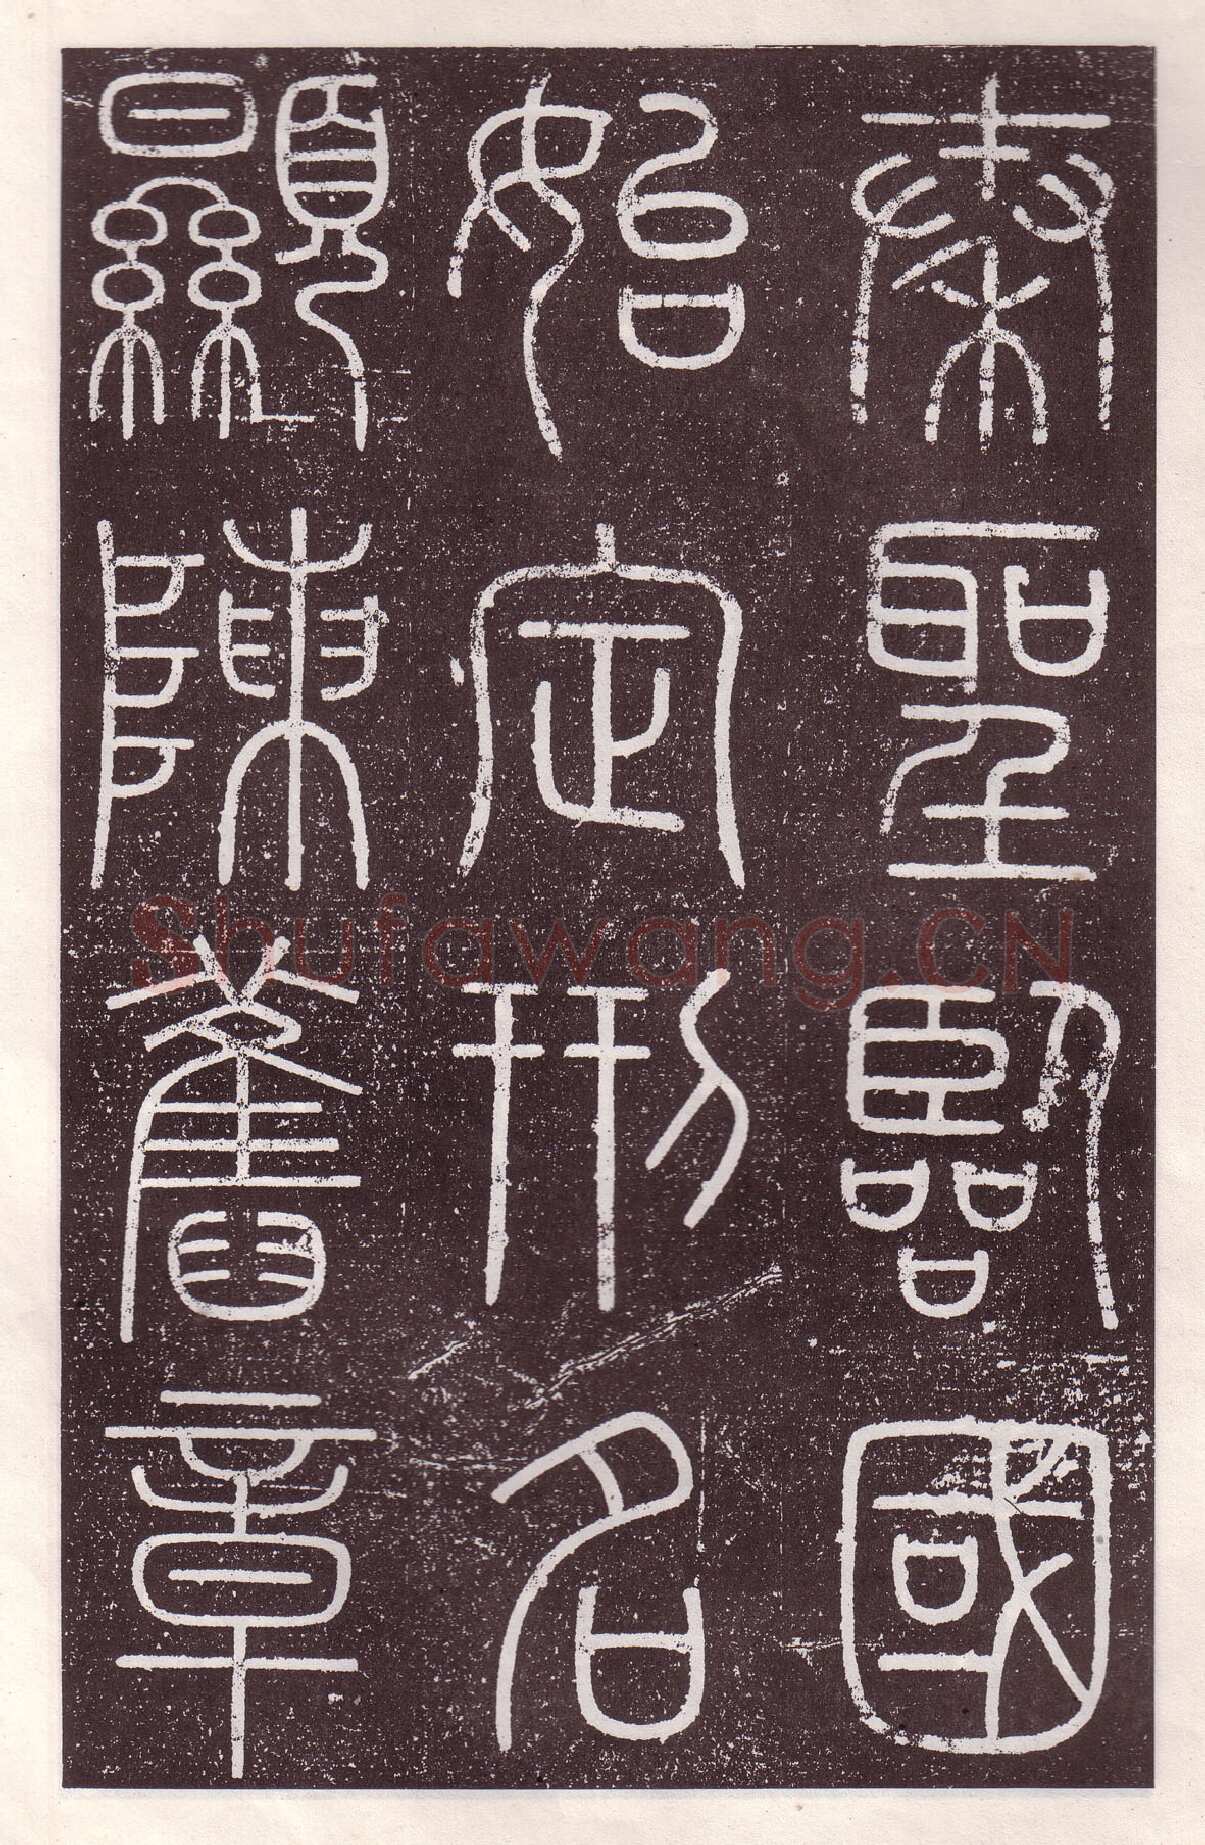 秦聖臨國
始定刑名
顯陳舊章
Shufawang.CN